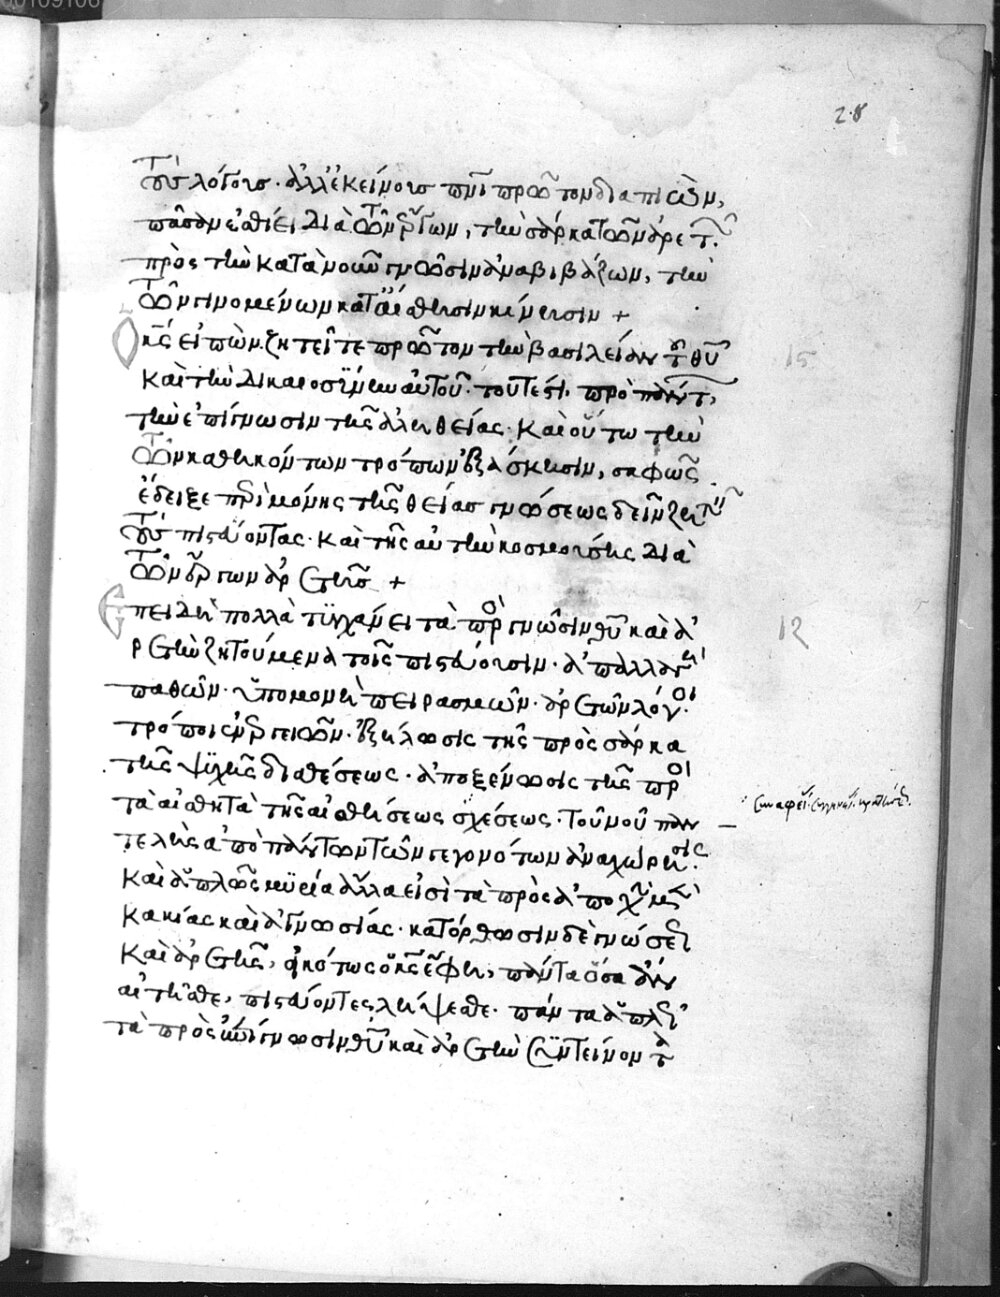 28
τοὺς λόγους· ἀλλ' ἐκείνοις πνι πρῶτον διαπιστῶν,
πᾶσαν ἐσθίει διὰ τῶν ἔργων, τὴν σάρκα τῶν ἀρετ.
πρὸς τὴν κατὰ νοῦν γνῶσιν ἀναβιβάζων, τὴν
τῶν γινομένων κατ' αἴσθησιν κίνησιν +
Ὁ κς εἰπὼν ζητεῖτε πρῶτον τὴν βασιλείαν τ θυ
15
καὶ τὴν δικαιοσύνην αὐτοῦ· τουτέστι πρὸ πάντ,
τὴν ἐπίγνωσιν τῆς ἀληθείας· καὶ οὕτω τὴν
τῶν καθηκόντων τρόπων ἐξάσκησιν, σαφῶς
ἔδειξε περὶ μόνης τῆς θείας γνώσεως δεῖν ζητεῖν
τοὺς πιστεύοντας· καὶ τῆς αὐτὴν κοσμούσης διὰ
τῶν ἔργων ἀρετῆς +
Ἐπειδὴ πολλὰ τυγχάνει τὰ πρ γνῶσιν θυ καὶ ἀ
12
ρετὴν ζητούμενα τοῖς πιστεύουσιν· ἀπαλλαγὴ
παθῶν· ὑπομονὴ πειρασμῶν· ἀρετῶν λόγοι·
τρόποι ἐνεργειῶν· ἐξήλωσις τῆς πρὸς σάρκα
τῆς ψυχῆς διαθέσεως· ἀποξένωσις τῆς πρ
τὰ αἰσθητὰ τῆς αἰσθήσεως σχέσεως· τοῦ νοῦ παν
τελὴς ἀπὸ πάντων τῶν γεγονότων ἀναχώρησις·
καὶ ἁπλῶς μυρία ἄλλα εἰσὶ τὰ πρὸς ἀποχὴν μὲν
κακίας καὶ ἀγνωσίας· κατόρθωσιν δὲ γνώσεως
καὶ ἀρετῆς, εἰκότως ὁ κς ἔφη, πάντα ὅσα ἂν
αἰτῆσθε, πιστεύοντες λήψεσθε· πάντα ἁπλῶς
τὰ πρὸς ἐπίγνωσιν θυ καὶ ἀρετὴν συντείνοντα